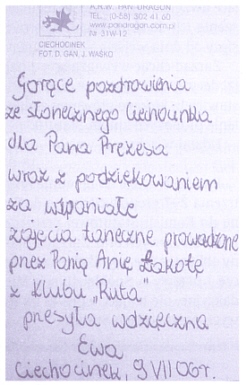 A.R.W. "PAN DRAGON"
TEL.: (0-58) 302 41 60
www.pandragon.com.pl
Nr 31W-12
CIECHOCINEK
FOT. D. GAN, J. WAŚKO
Gorące pozdrowienia
ze słonecznego Ciechocinka
dla Pana Prezesa
wraz z podziękowaniem
za wspaniałe
zajęcia taneczne prowadzone
przez Panią Anię Łakotę
z Klubu „Ruta"
przesyła wdzięczna
Ewa
Ciechocinek, 9 VII 06r.